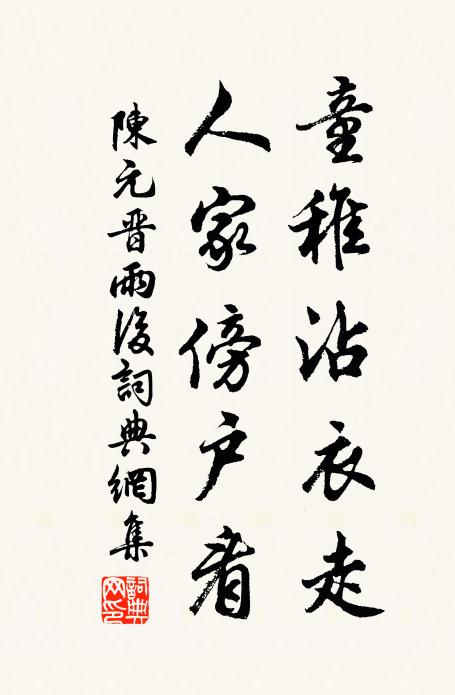 童稚沾衣走
人家傍户看
陳元晋雨後詞典網集
詞典网印